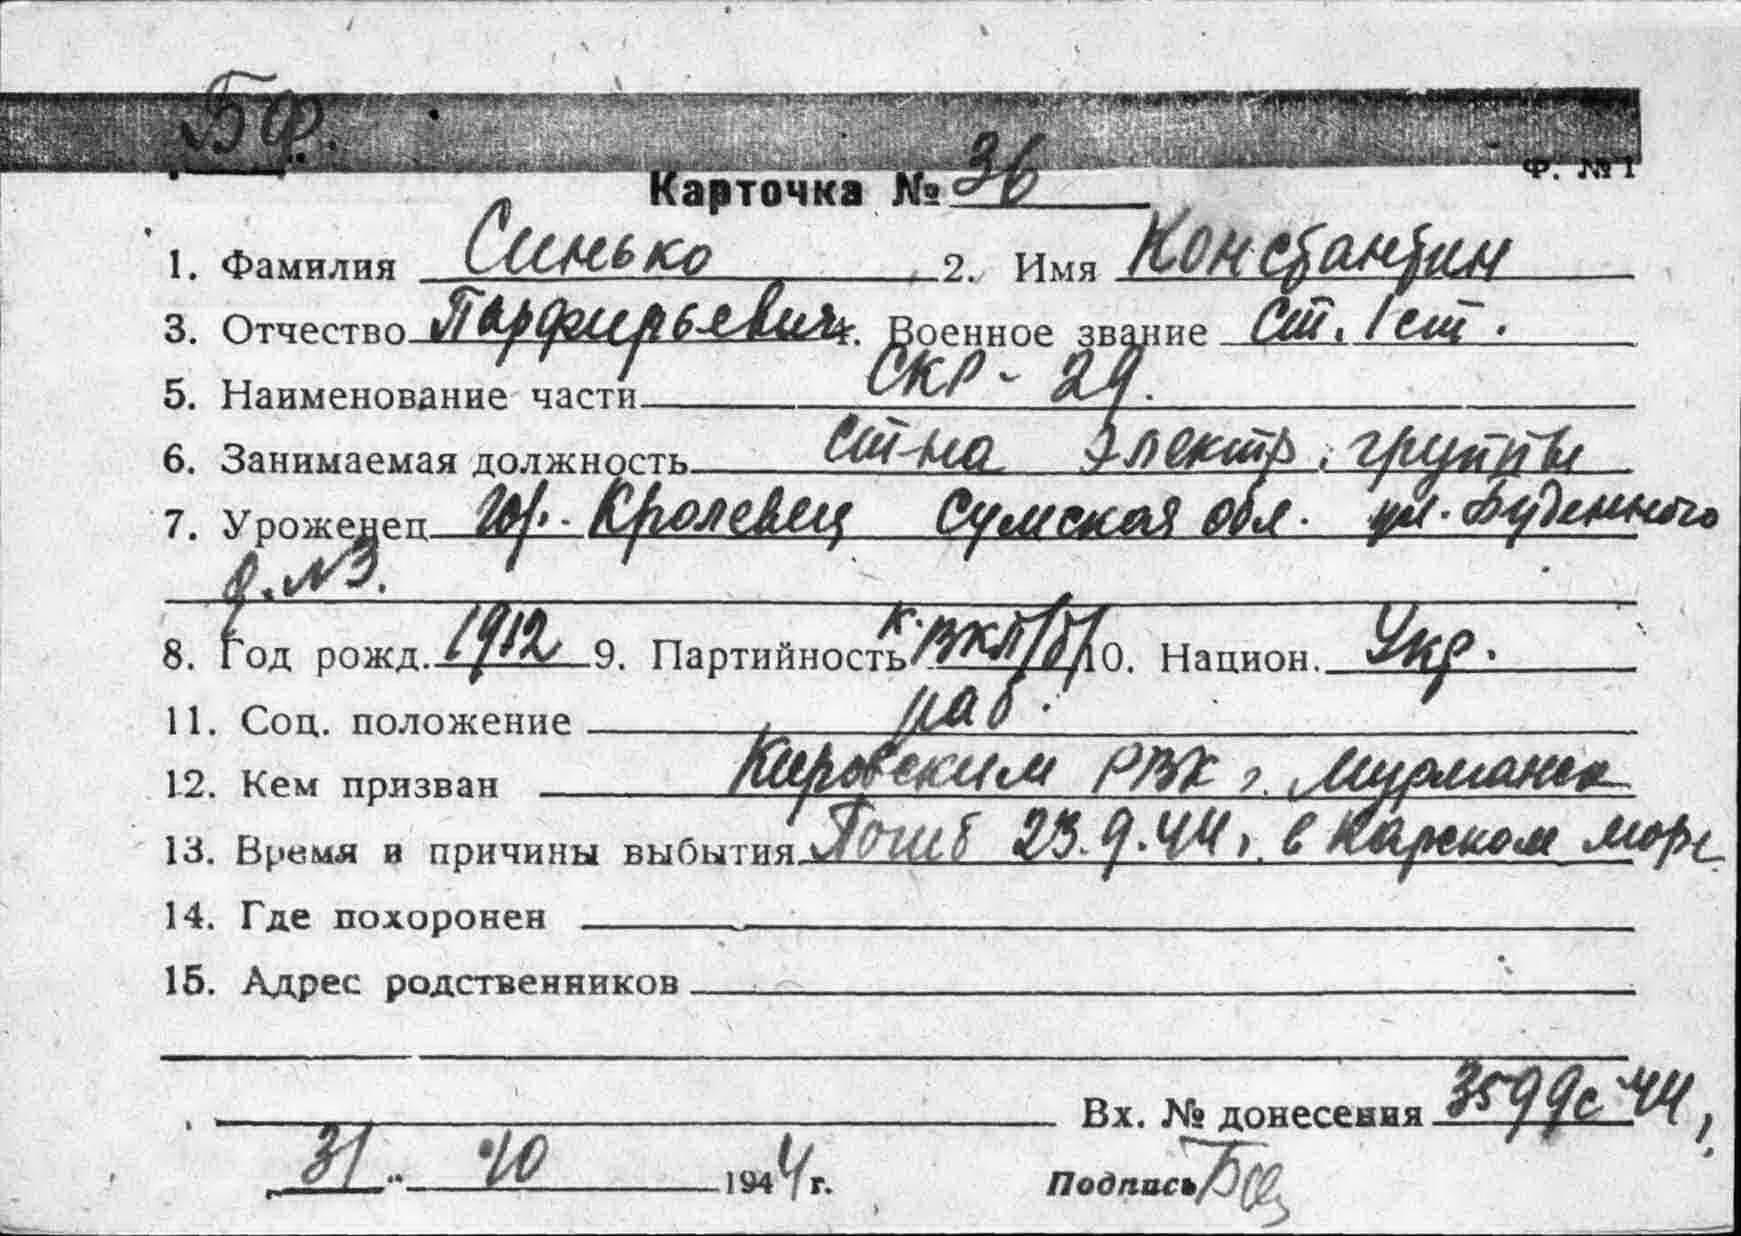 БФ.
Ф. №1
Карточка № 36
1. Фамилия Синько 2. Имя Константин
3. Отчество Парфирьевич 4. Военное звание ст. 1 ст.
5. Наименование части СКР - 29.
6. Занимаемая должность ст-на электр. группы
7. Уроженец гор. Кролевец Сумская обл. ул. Буденного
д. №3.
8. Год рожд. 1912 9. Партийность к. ВКП/б/ 10. Национ. Укр.
11. Соц. положение раб.
12. Кем призван Кировским РВК г. Мурманск
13. Время и причины выбытия Погиб 23.9.44 г. в Карском море
14. Где похоронен
15. Адрес родственников
Вх. № донесения 3599с 44
31 10 1944 г. Подпись